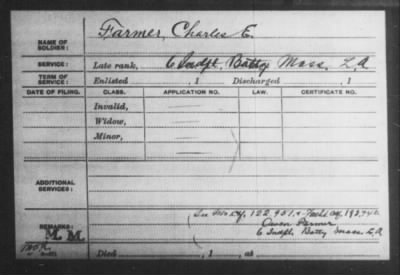 NAME OF SOLDIER: Farmer, Charles E.
SERVICE: Late rank, 6 Indpt. Batty Mass. L. A.
TERM OF SERVICE: Enlisted , 1 Discharged , 1
DATE OF FILING. CLASS. APPLICATION NO. LAW. CERTIFICATE NO.
Invalid,
Widow,
Minor,
ADDITIONAL SERVICES:
122,951
Farmer
REMARKS: M. M. 6 Indpt. Batty Mass. L. A.
Died , 1 , at